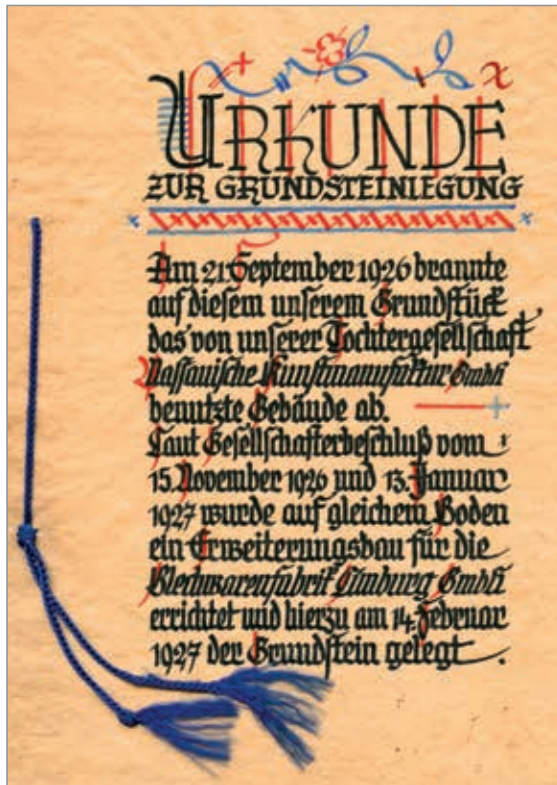 URKUNDE
ZUR GRUNDSTEINLEGUNG
Am 21. September 1926 brannte
auf diesem unserem Grundstück
das von unserer Tochtergesellschaft
Nassauische Kunstmanufaktur GmbH
benutzte Gebäude ab.
Laut Gesellschafterbeschluß vom
15. November 1926 und 13. Januar
1927 wurde auf gleichem Boden
ein Erweiterungsbau für die
Blechwarenfabrik Limburg GmbH
errichtet und hierzu am 14. Februar
1927 der Grundstein gelegt.